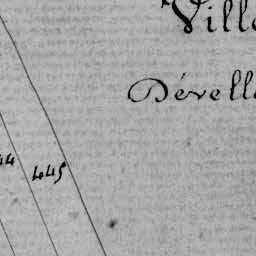 Ville
Dévelle
44
445